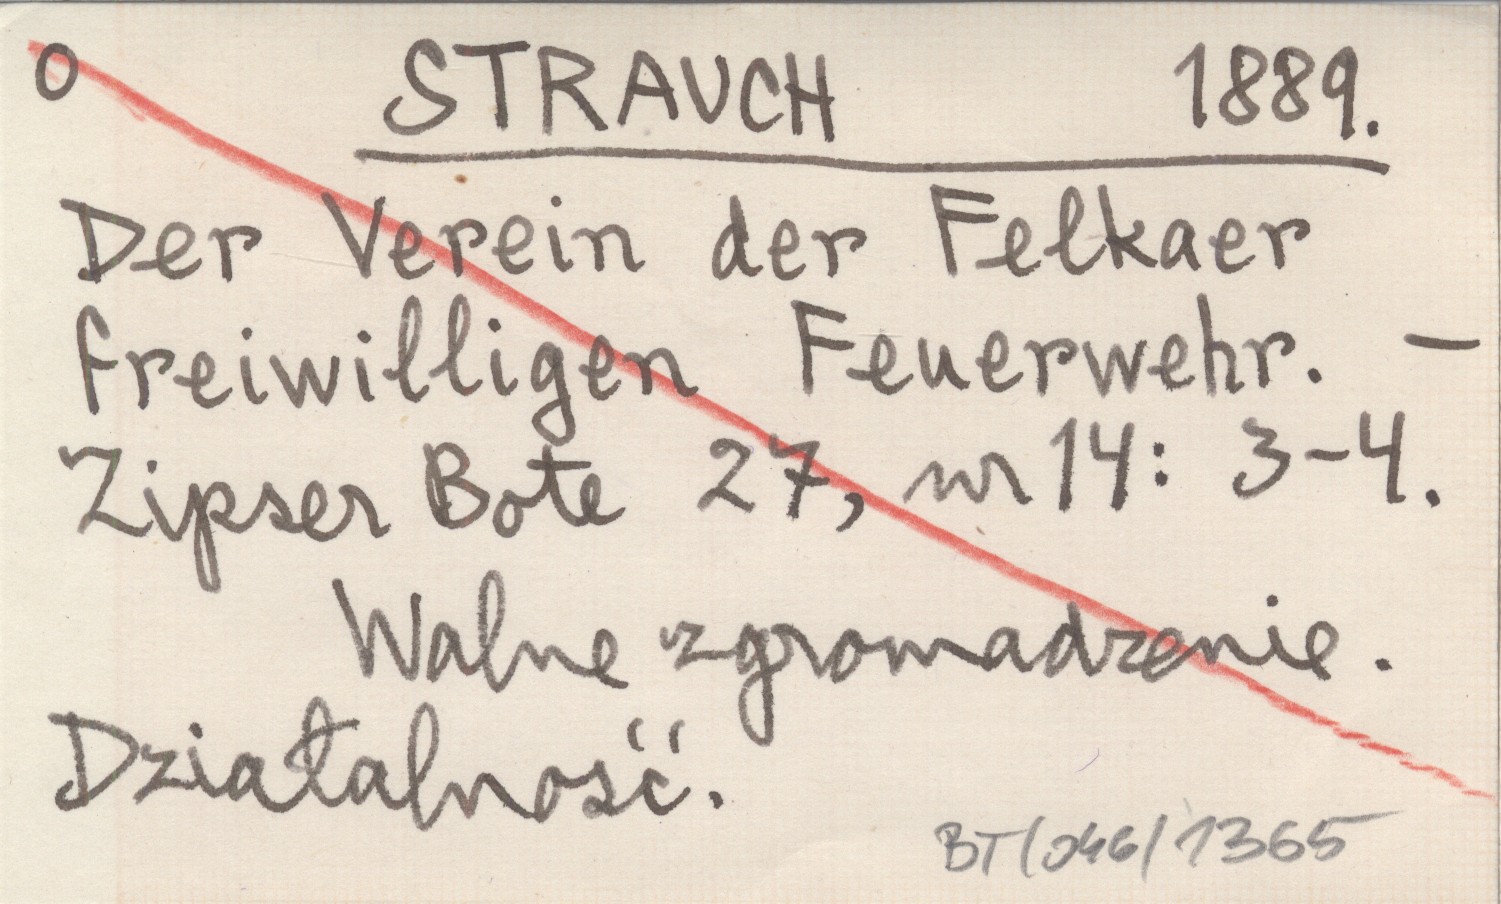 O STRAUCH 1889.
Der Verein der Felkaer
freiwilligen Feuerwehr. –
Zipser Bote 27, nr 14: 3-4.
Walne zgromadzenie.
Działalność.
BT/046/1365